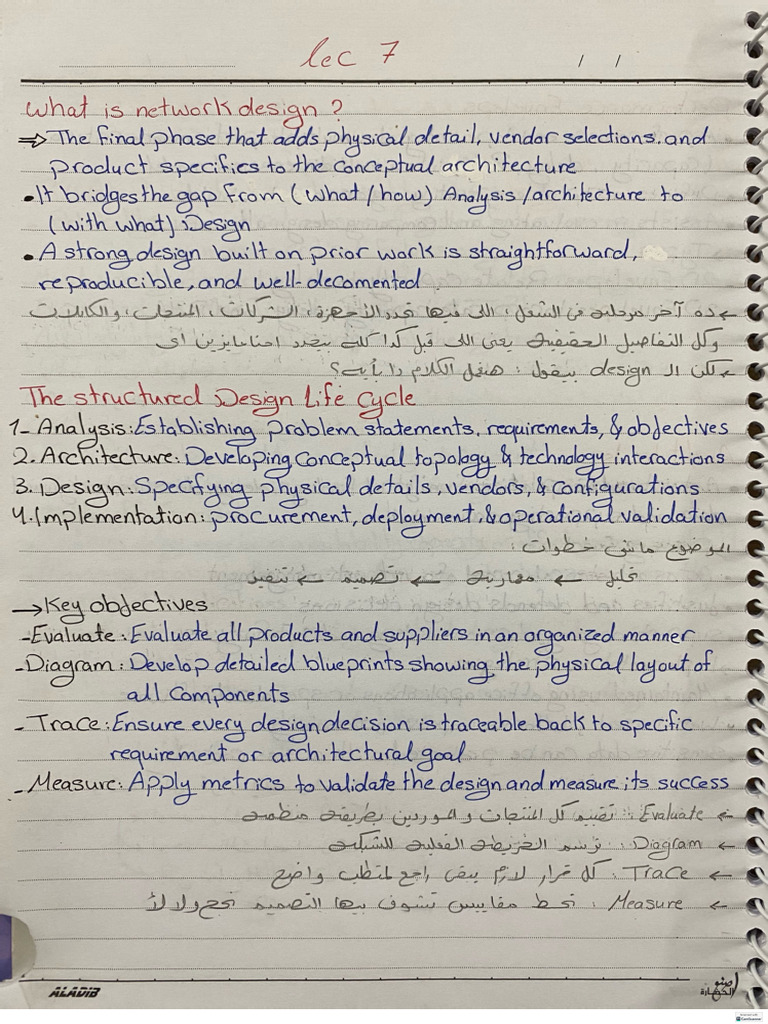 lec 7
/ /
What is network design ?
⇒ The final phase that adds physical detail, vendor selections. and
product specifies to the conceptual architecture
• It bridges the gap from (what / how) Analysis / architecture to
(with what) Design
• A strong design built on prior work is straightforward,
reproducible, and well-decomented
← ده آخر مرحلة في الشغل، اللي فيها تحدد الأجهزة، الشركات، المنتجات، والكابلات
وكل التفاصيل الحقيقية يعني اللي قبل كدا كله بيحدد احنا عايزين اي
← لكن الـ design بيقول : هنعمل الكلام دا بأيه؟
The structured Design Life Cycle
1- Analysis: Establishing problem statements, requirements, & objectives
2. Architecture: Developing conceptual topology & technology interactions
3. Design: Specifying physical details, vendors, & configurations
4. Implementation: procurement, deployment, & operational validation
الموضوع ماشي خطوات :
تحليل ← معمارية ← تصميم ← تنفيذ
→ Key objectives
- Evaluate: Evaluate all products and suppliers in an organized manner
- Diagram: Develop detailed blueprints showing the physical layout of
all components
- Trace: Ensure every design decision is traceable back to specific
requirement or architectural goal
- Measure: Apply metrics to validate the design and measure its success
← Evaluate : تقييم كل المنتجات والموردين بطريقة منظمة
← Diagram : ترسم الخريطة الفعلية للشبكة
← Trace : كل قرار لازم يبقى راجع لمتطلب واضح
← Measure : تحط مقاييس تشوف بيها التصميم نجح ولا لأ
ALADIB
CamScanner